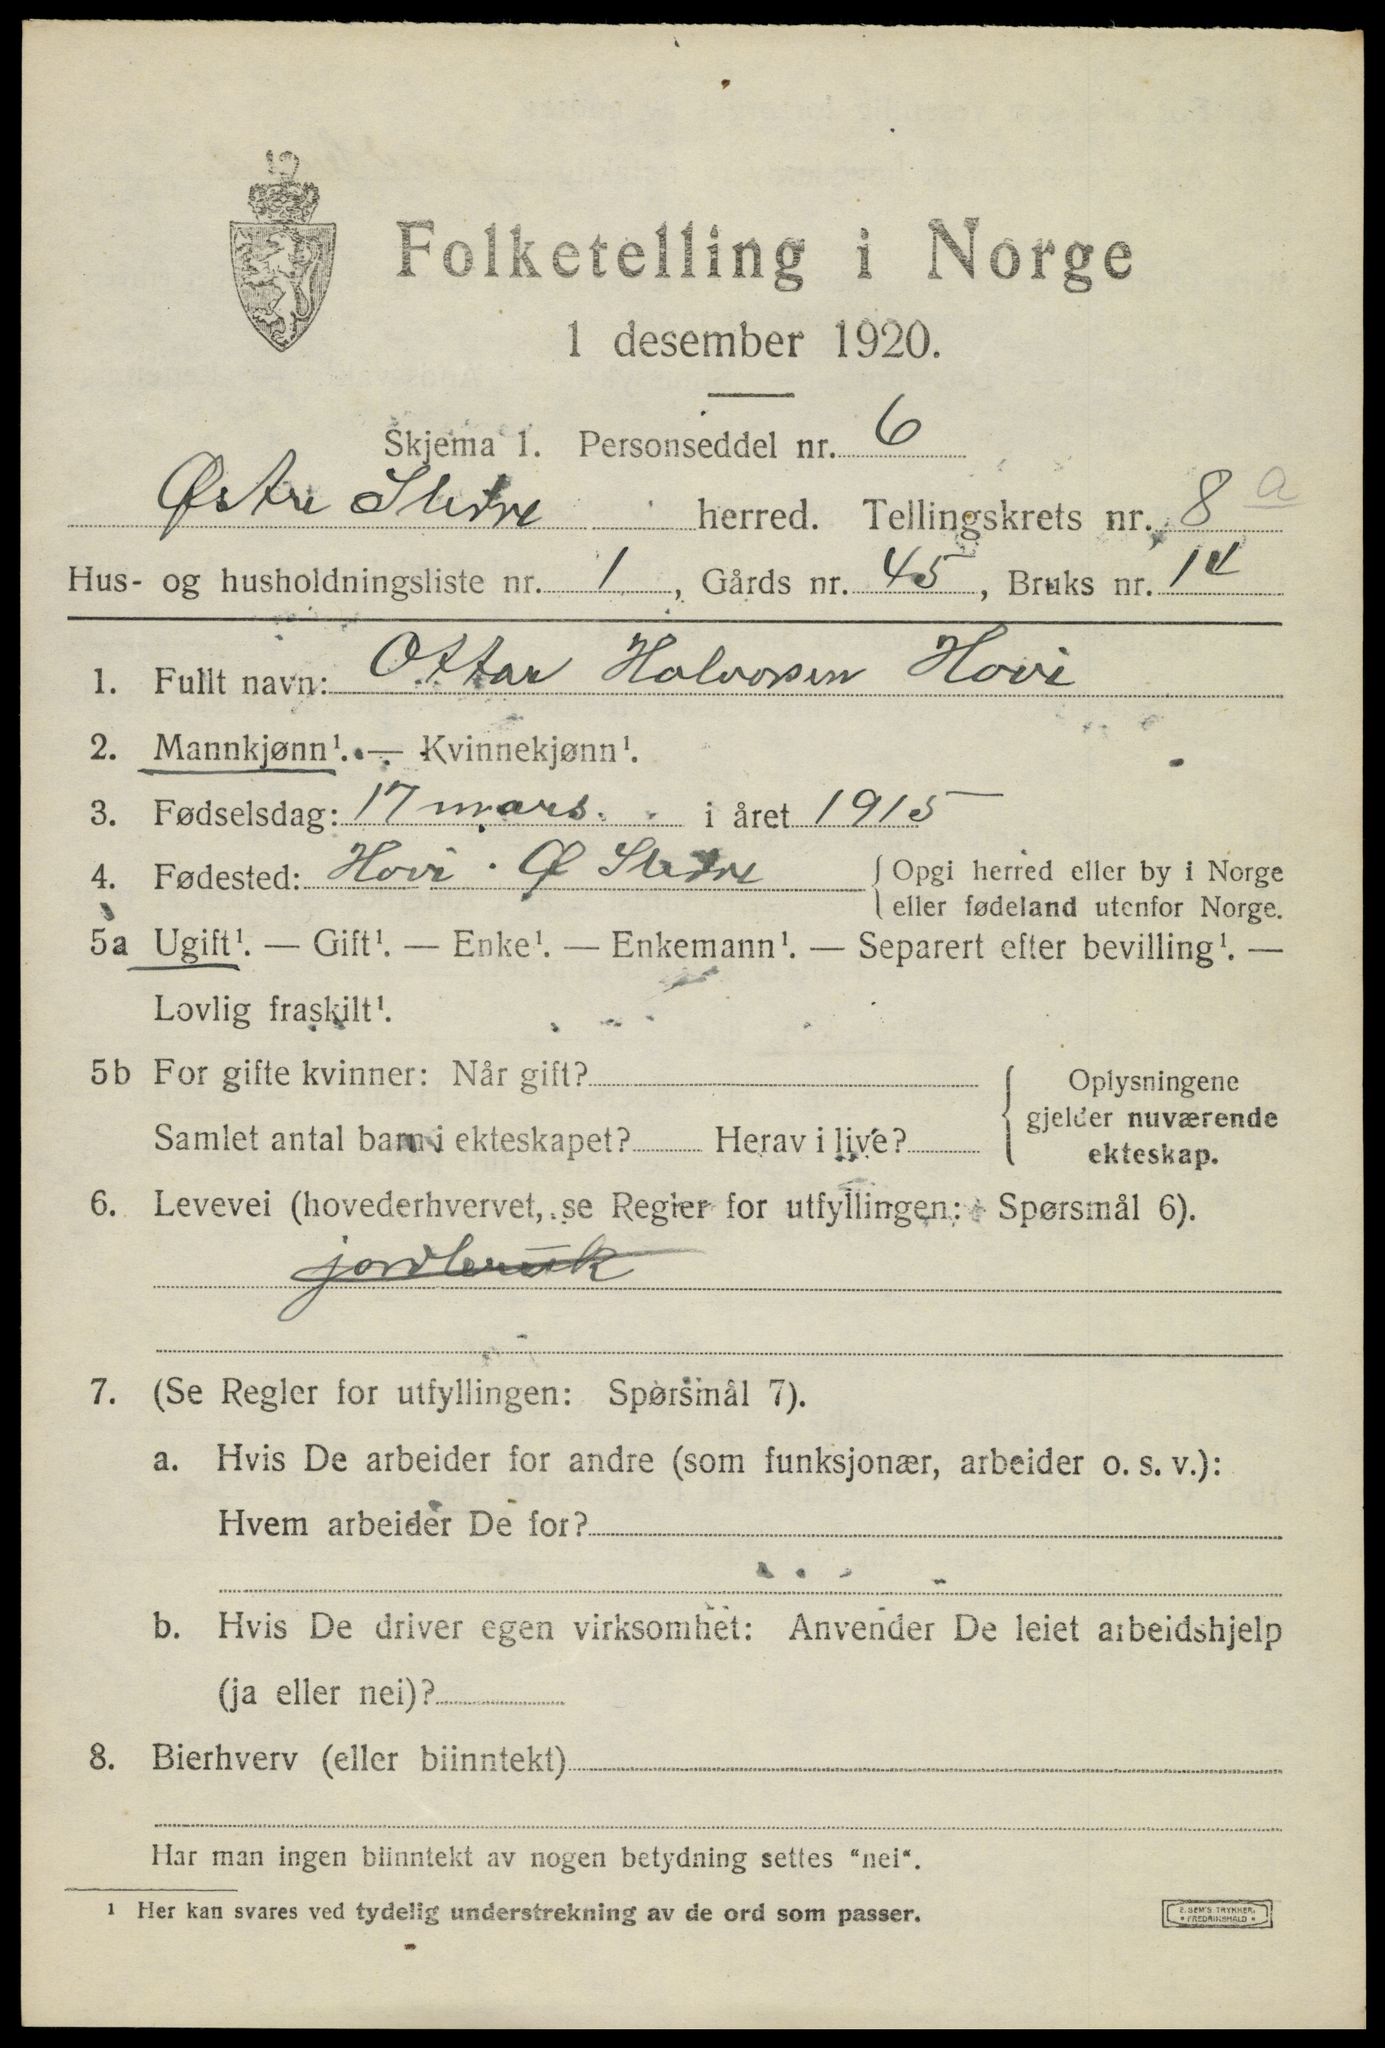 Folketelling i Norge
1 desember 1920.
Skjema 1. Personseddel nr. 6
Østre Slidre herred. Tellingskrets nr. 8 a
Hus- og husholdningsliste nr. 1, Gårds nr. 45, Bruks nr. 14
1. Fullt navn: Ottar Halvorsen Hovi
2. Mannkjønn¹. — Kvinnekjønn¹.
3. Fødselsdag: 17 mars. i året 1915
4. Fødested: Hovi. Ø Slidre { Opgi herred eller by i Norge
eller fødeland utenfor Norge.
5a Ugift¹. — Gift¹. — Enke¹. — Enkemann¹. — Separert efter bevilling¹. —
Lovlig fraskilt¹.
5b For gifte kvinner: Når gift?
Samlet antal barn i ekteskapet? Herav i live?
{ Oplysningene
gjelder nuværende
ekteskap.
6. Levevei (hovederhvervet, se Regler for utfyllingen: Spørsmål 6).
jordbruk
7. (Se Regler for utfyllingen: Spørsmål 7).
a. Hvis De arbeider for andre (som funksjonær, arbeider o. s. v.):
Hvem arbeider De for?
b. Hvis De driver egen virksomhet: Anvender De leiet arbeidshjelp
(ja eller nei)?
8. Bierhverv (eller biinntekt)
Har man ingen biinntekt av nogen betydning settes "nei".
¹ Her kan svares ved tydelig understrekning av de ord som passer.
E. SEM'S TRYKKERI
• FREDRIKSHALD •